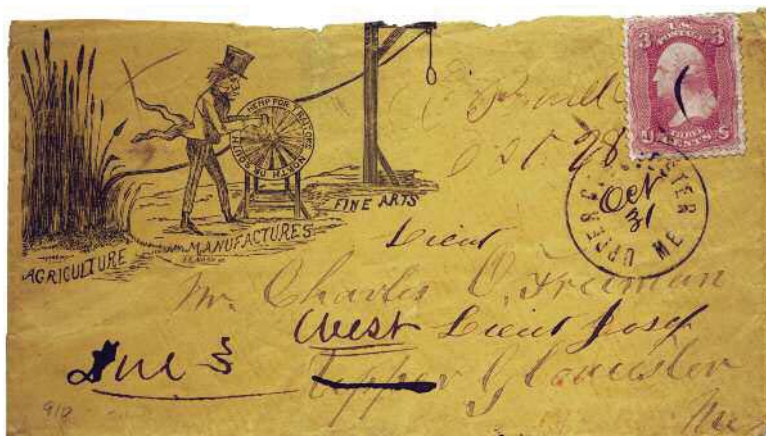 HEMP FOR TRAITORS, NORTH OR SOUTH
AGRICULTURE
MANUFACTURES
FINE ARTS
3 U.S. POSTAGE 3
U THREE CENTS S
Oct. 28
UPPER GLOUCESTER ME
OCT
31
Lieut
Mr. Charles O. Freeman
West
Due 3
Upper Gloucester
Me
910